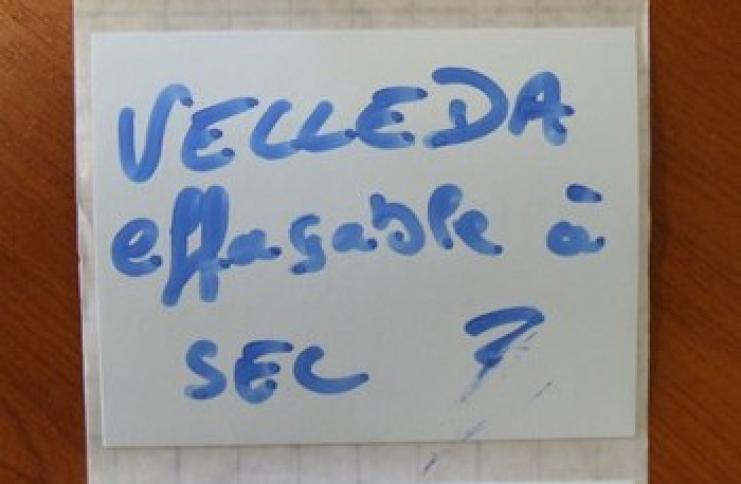 VELLEDA
effaçable à
SEC ?